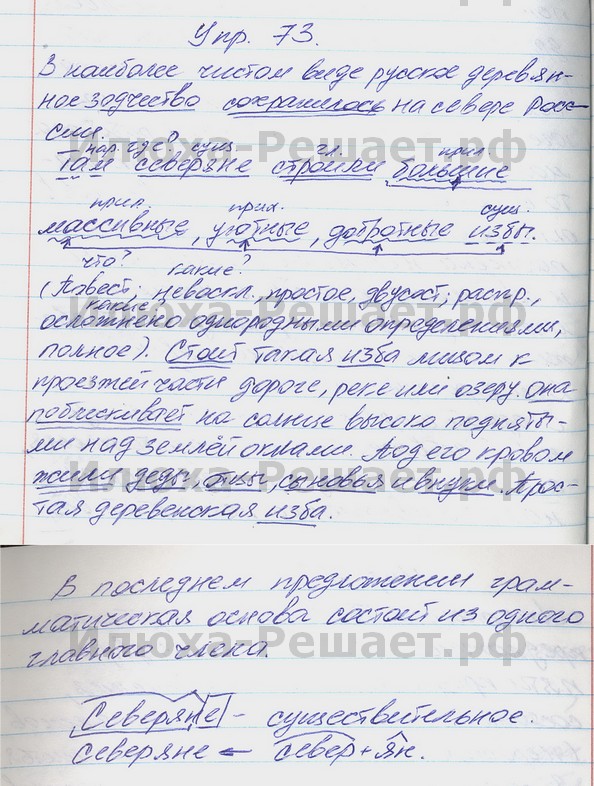 Упр. 73.
В наиболее чистом виде русское деревян-
ное зодчество сохранилось на севере Рос-
сии.
нар. где? сущ. гл. прил.
Там северяне строили большие
прил. прил. сущ.
массивные, уютные, добротные избы.
что? какие?
(Повест., невоскл., простое, двусост., распр.,
какие?
осложнено однородными определениями,
полное). Стоит такая изба лицом к
проезжей части дороге, реке или озеру. она
поблискивает на солнце высоко подняты-
ми над землёй окнами. Под его кровом
жили деды, отцы, сыновья и внуки. Прос-
тая деревенская изба.
В последнем предложении грам-
матическая основа состоит из одного
главного члена.
Северяне - существительное.
северяне ← север + ян.
Илюха-Решает.рф
Илюха-Решает.рф
Илюха-Решает.рф
Илюха-Решает.рф